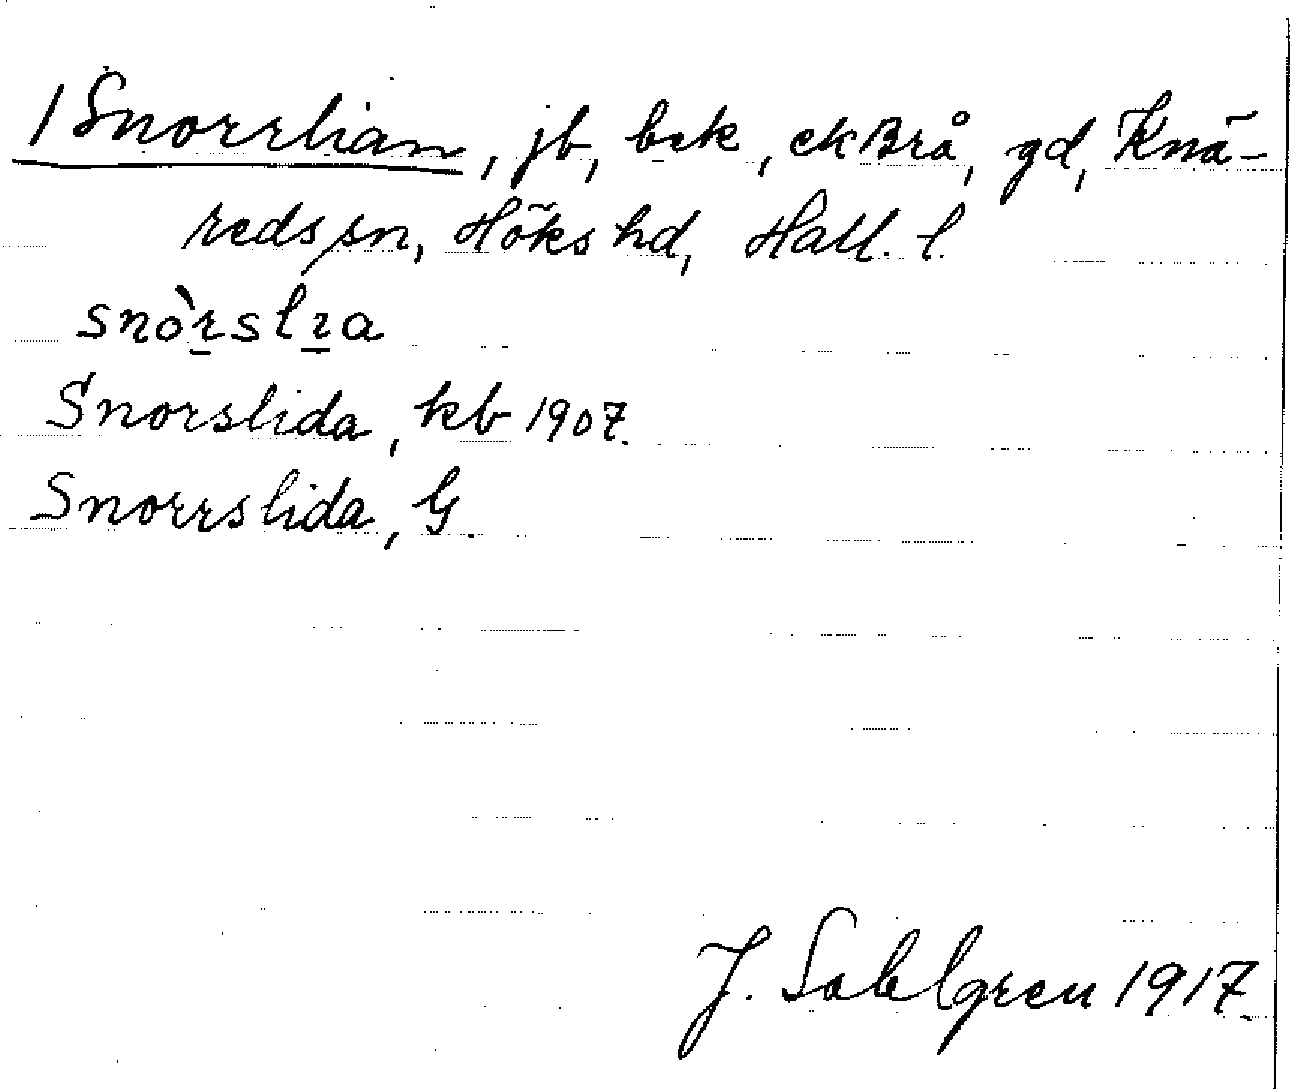 / Snorrlian, jb, bek, ekBrå, gd, Knä-
reds sn, Höks hd, Hall. l.
snòrslıa
Snorslida, kb 1907.
Snorrslida, G.
J. Sahlgren 1917.